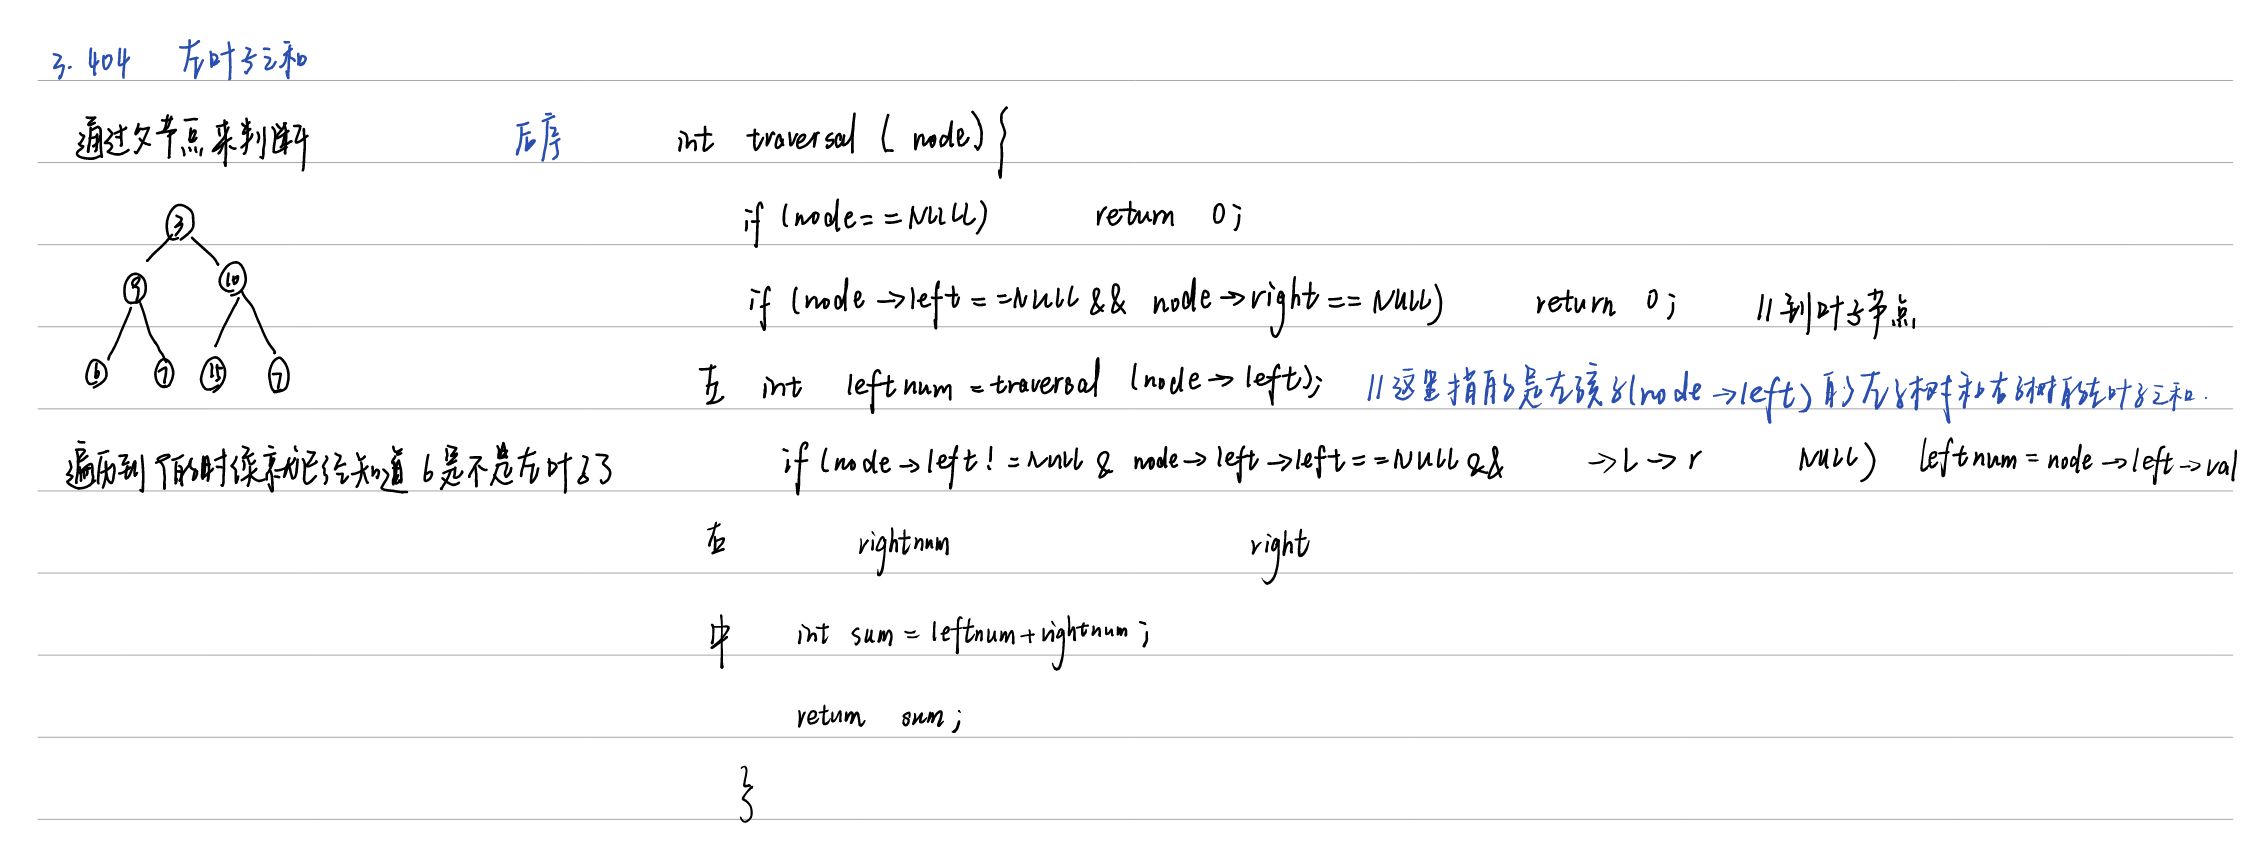 3. 404 左叶子之和
通过父节点来判断 后序 int traversal ( node) {
if (node==NULL) return 0;
3
9 10
6 7 15 7
if (node→left==NULL && node→right==NULL) return 0; //到叶子节点
左 int leftnum=traversal (node→left); //这里指的是左孩子(node→left)的左子树和右子树的左叶子之和.
遍历到9的时候就已经知道6是不是左叶子了 if (node→left!=NULL & node→left→left==NULL && →L→r NULL) leftnum=node→left→val
右 rightnum right
中 int sum=leftnum+rightnum;
return sum;
}